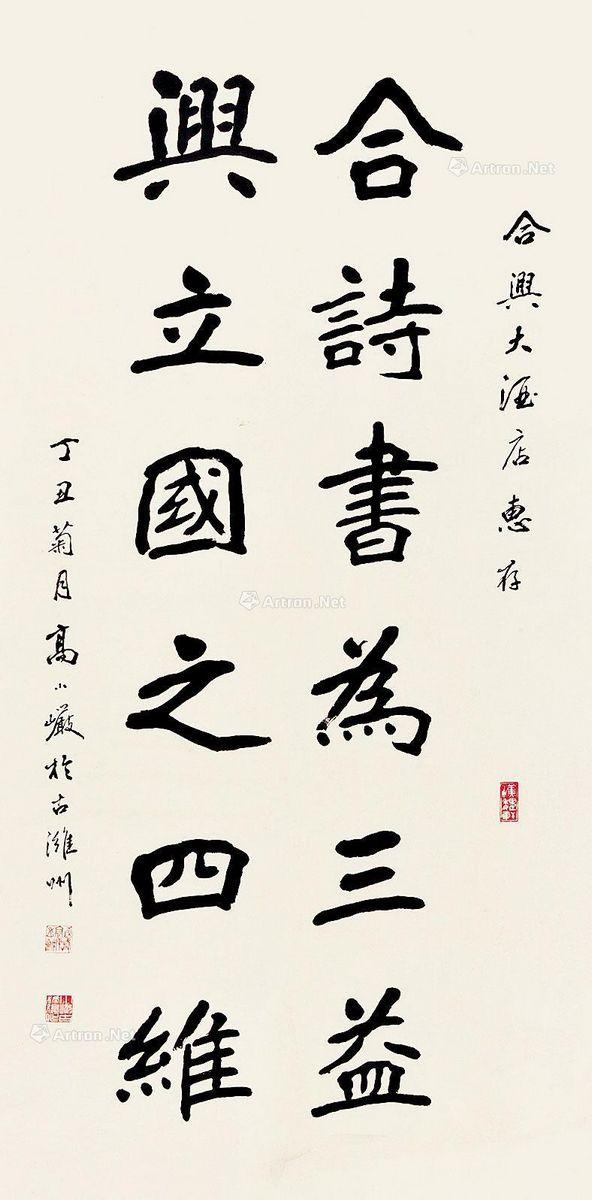 合興大酒店惠存
合詩書為三益
興立國之四維
丁丑菊月高小巖於古濰州
Artron.Net
Artron.Net
Artron.Net